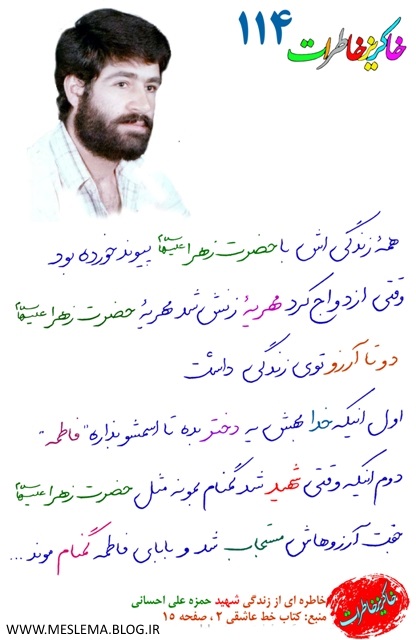 خاکریز خاطرات ۱۱۴
همهٔ زندگی اش با حضرت زهرا علیهاالسلام پیوند خورده بود
وقتی ازدواج کرد مهریهٔ زنش شد مهریهٔ حضرت زهرا علیهاالسلام
دو تا آرزو توی زندگی داشت
اول اینکه خدا بهش یه دختر بده تا اسمشو بذاره "فاطمه"
دوم اینکه وقتی شهید شد گمنام بمونه مثل حضرت زهرا علیهاالسلام
جفت آرزوهاش مستجاب شد و بابای فاطمه گمنام موند ...
خاطره ای از زندگی شهید حمزه علی احسانی
منبع: کتاب خط عاشقی ۲ ، صفحه ۱۵
خاکریز خاطرات
WWW.MESLEMA.BLOG.IR